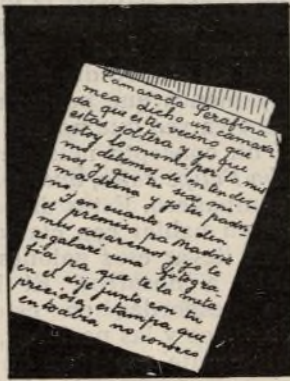 Camarada Serafina
mea dicho un camara
da que este vecino que
estas soltera y yo que
estoy lo mismo por lo mis
mo debemos de entender
nos y que tu seas mi
madrina y yo tu padri
no
Y en cuanto me den
el premiso pa Madrid
mus casaremos y yo te
regalaré una fotogra
fia pa que te la meta
en el dije junto con tu
preciosa estampa que
entoabia no conozco